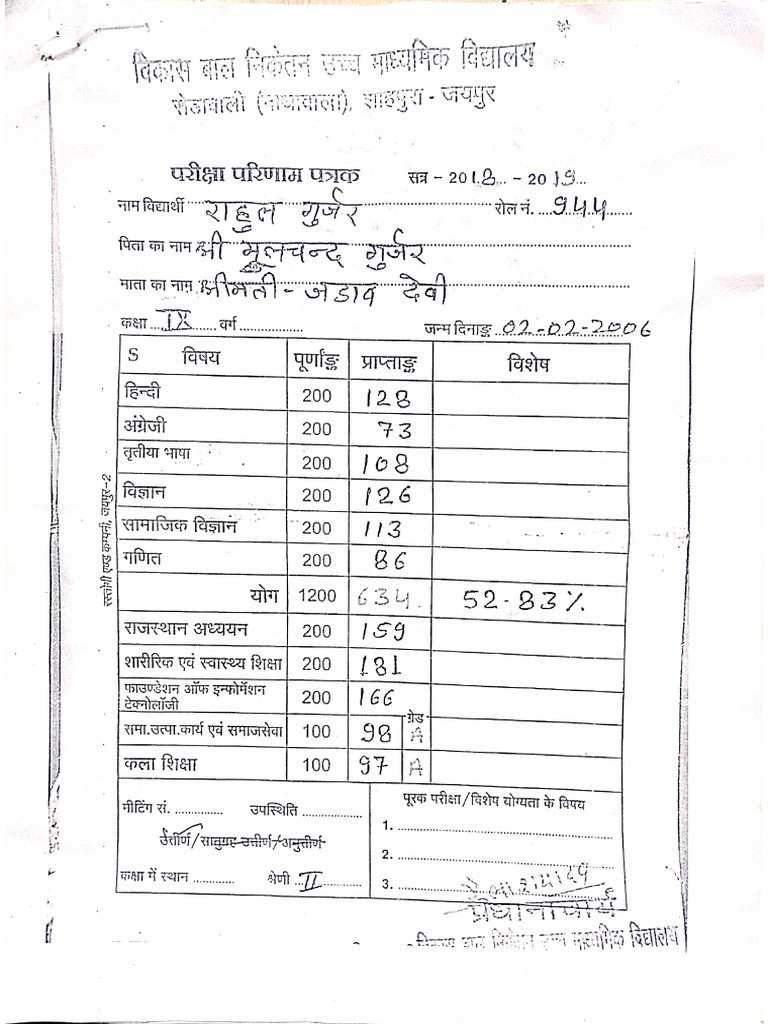 विकास बाल निकेतन उच्च माध्यमिक विद्यालय
सेडावाली (नाथावाला), शाहपुरा - जयपुर
परीक्षा परिणाम पत्रक सत्र - 2018 - 2019
नाम विद्यार्थी राहुल गुर्जर रोल नं. 944
पिता का नाम श्री मूलचन्द गुर्जर
माता का नाम श्रीमती - जडाव देवी
कक्षा IX वर्ग जन्म दिनाङ्क 02-02-2006
S विषय पूर्णाङ्क प्राप्ताङ्क विशेष
हिन्दी 200 128
अंग्रेजी 200 73
तृतीया भाषा 200 108
विज्ञान 200 126
सामाजिक विज्ञान 200 113
गणित 200 86
योग 1200 634 52.83%
राजस्थान अध्ययन 200 159
शारीरिक एवं स्वास्थ्य शिक्षा 200 181
फाउण्डेशन ऑफ इन्फोर्मेशन टेक्नोलॉजी 200 166
ग्रेड
समा.उत्पा.कार्य एवं समाजसेवा 100 98 A
कला शिक्षा 100 97 A
मीटिंग सं. उपस्थिति पूरक परीक्षा/विशेष योग्यता के विषय
उत्तीर्ण/सानुग्रह उत्तीर्ण/अनुत्तीर्ण 1.
2.
कक्षा में स्थान श्रेणी II 3.
प्रधानाचार्य
विकास बाल निकेतन उच्च माध्यमिक विद्यालय